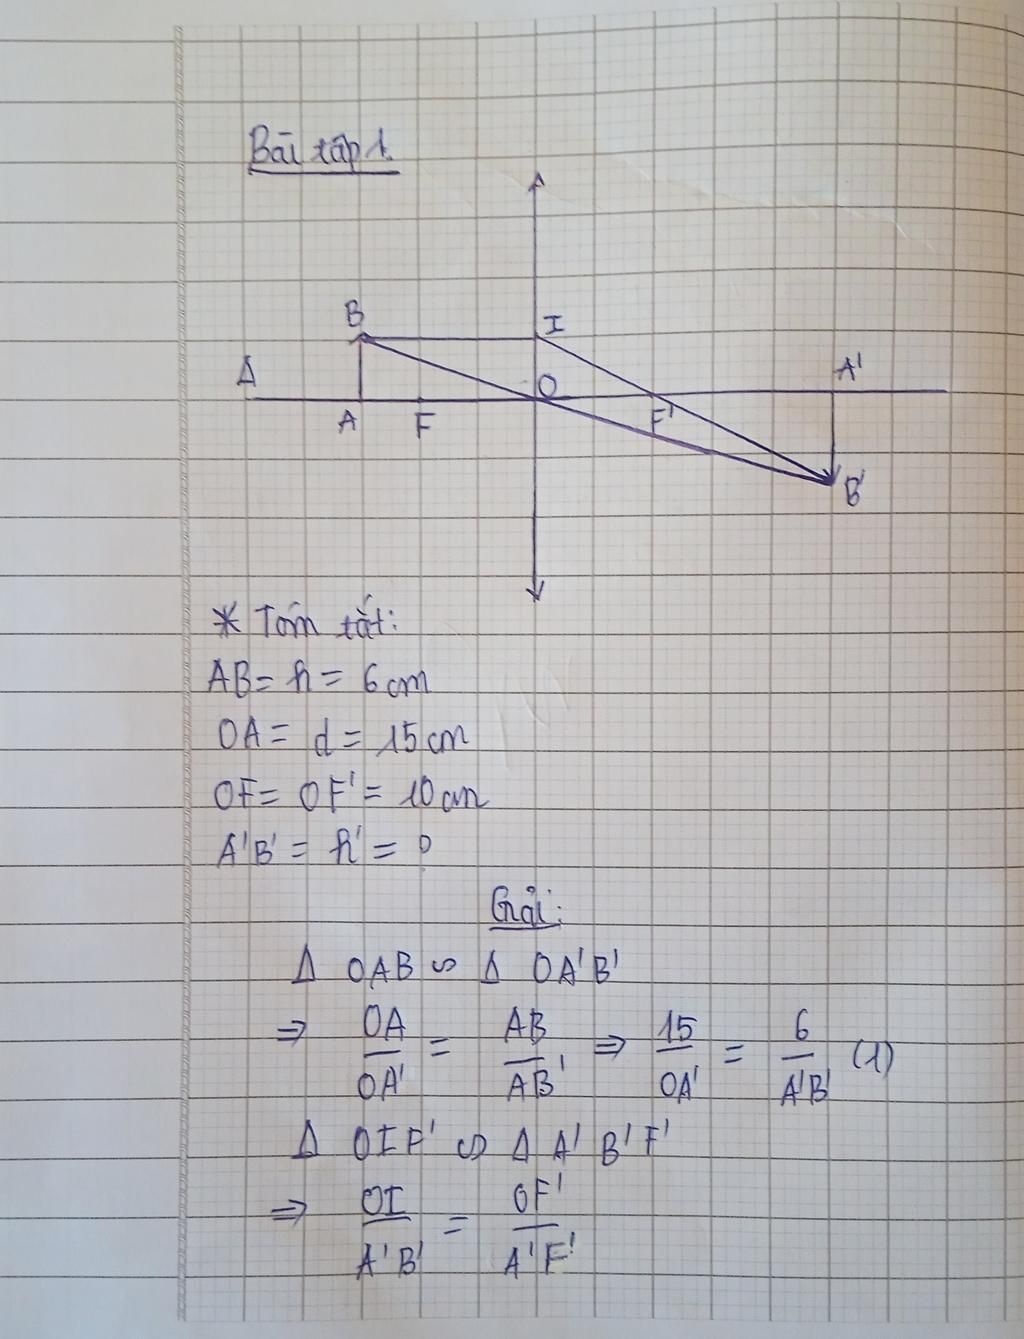 Bài tập 1.
B
I
Δ
O
A'
A
F
F'
B'
* Tóm tắt:
AB = h = 6 cm
OA = d = 15 cm
OF = OF' = 10 cm
A'B' = h' = ?
Giải:
Δ OAB ∽ Δ OA'B'
⇒ OA/OA' = AB/AB' ⇒ 15/OA' = 6/A'B' (1)
Δ OIF' ∽ Δ A'B'F'
⇒ OI/A'B' = OF'/A'F'